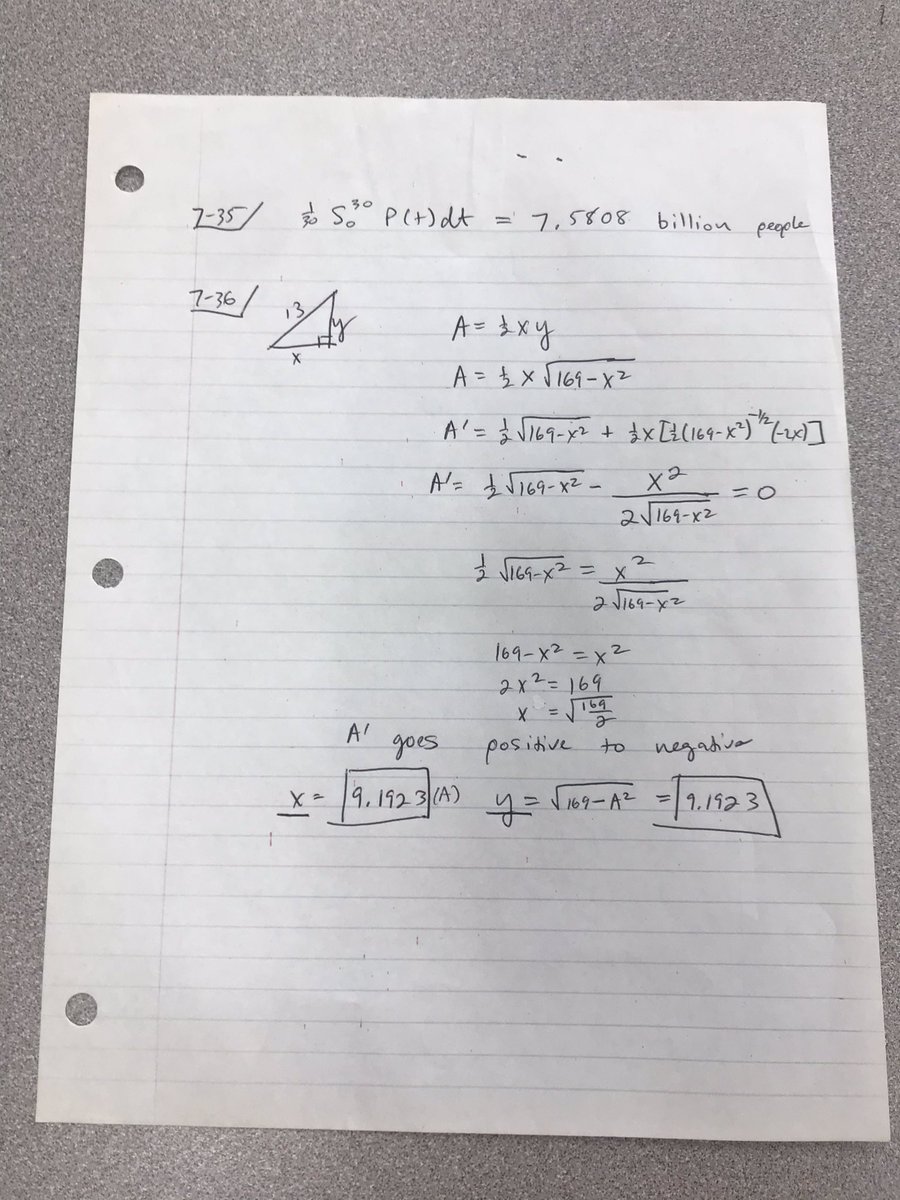 7-35/ 1/30 S₀³⁰ P(t)dt = 7.5808 billion people
7-36/
13
y
x
A = ½xy
A = ½x√169-x²
A' = ½√169-x² + ½x[½(169-x²)^-1/2(-2x)]
A' = ½√169-x² - x²/2√169-x² = 0
½√169-x² = x²/2√169-x²
169-x² = x²
2x² = 169
x = √169/2
A' goes positive to negative
x = 9.1923 (A) y = √169-A² = 9.1923